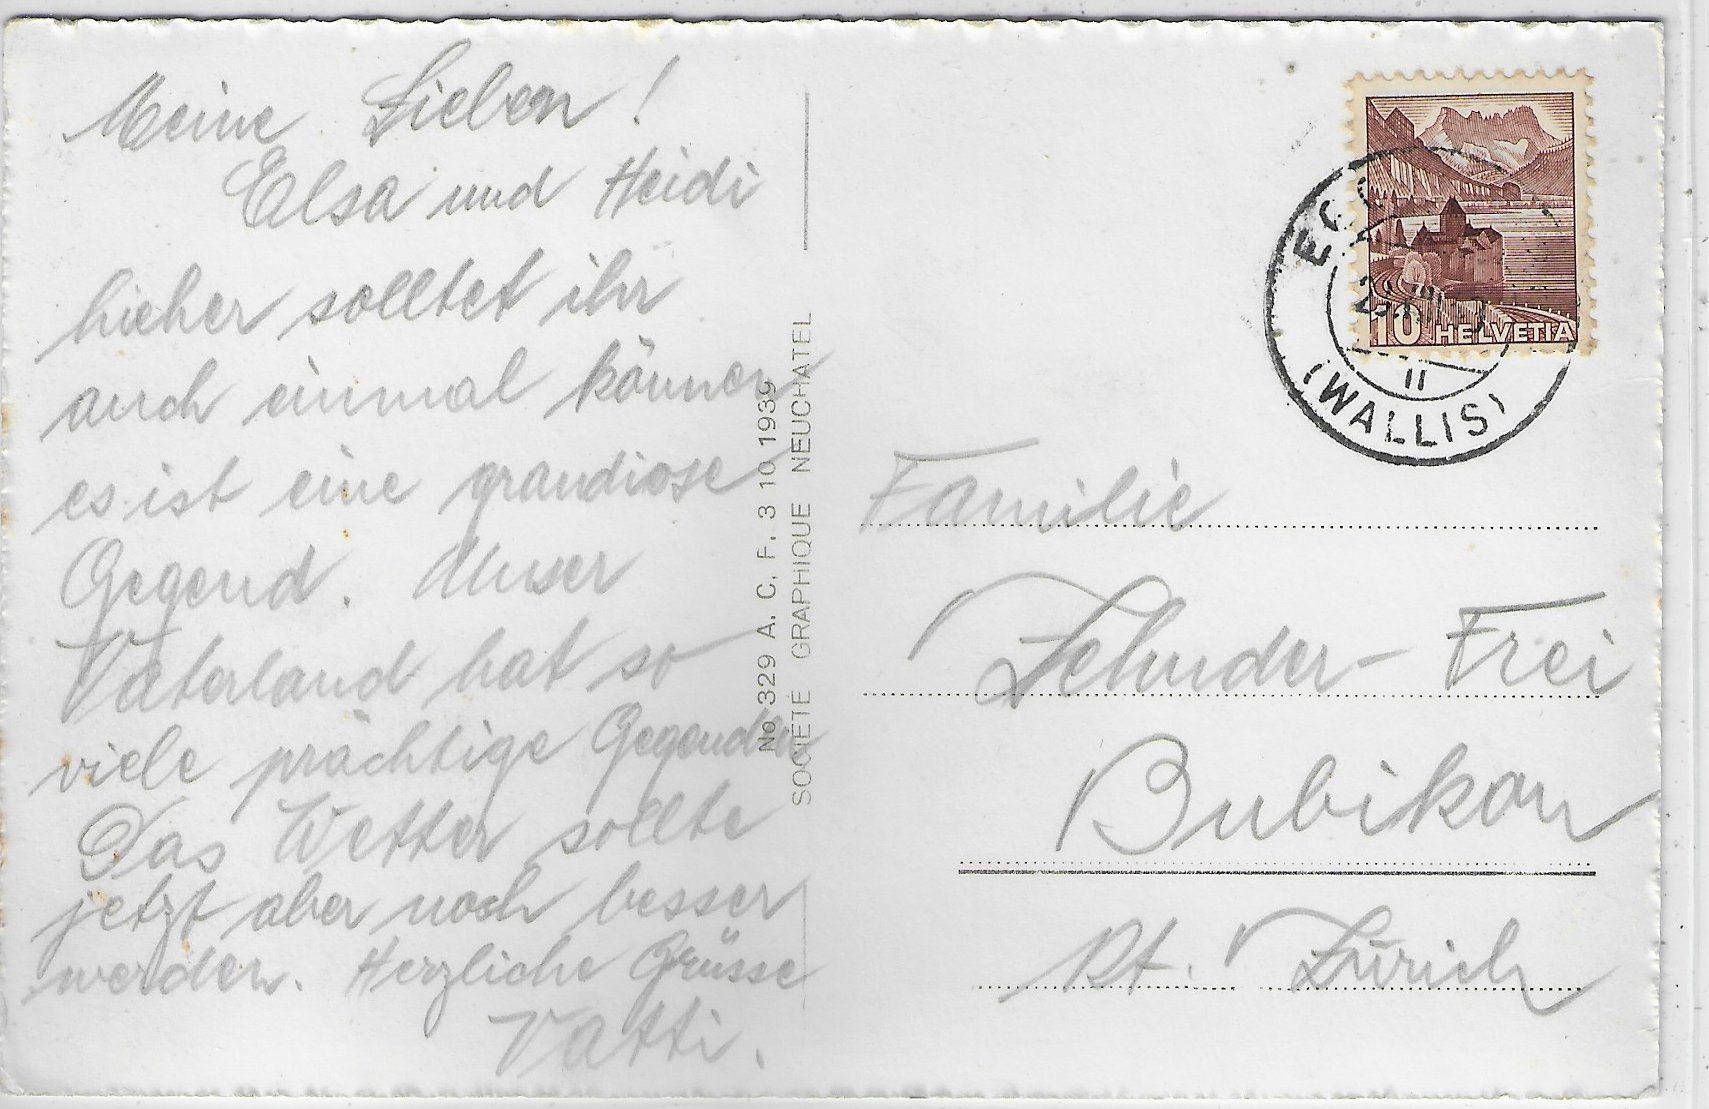 Meine Lieben!
Elsa und Heidi
hieher solltet ihr
auch einmal können
es ist eine grandiose
Gegend. Unser
Vaterland hat so
viele prächtige Gegenden
Das Wetter sollte
jetzt aber noch besser
werden. Herzliche Grüsse
Vatti.
No 329 A. C. F. 3 10 1939
SOCIÉTÉ GRAPHIQUE NEUCHATEL
10 HELVETIA
(WALLIS)
II
Familie
Zehnder-Frei
Bubikon
Kt. Zürich